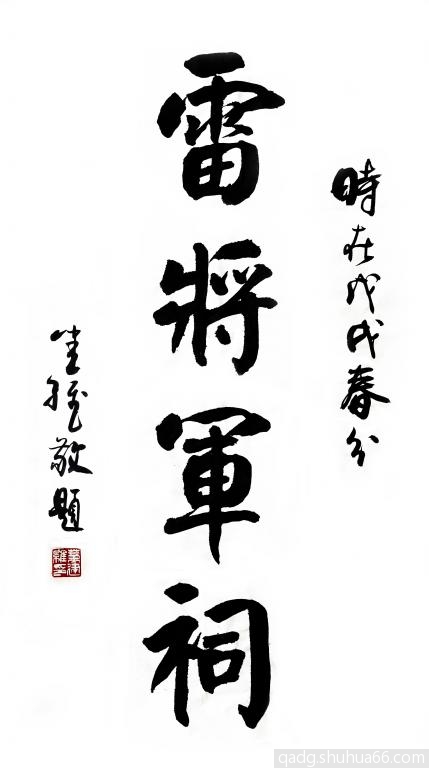 時在戊戌春分
雷將軍祠
敬題
qadg.shuhua66.com